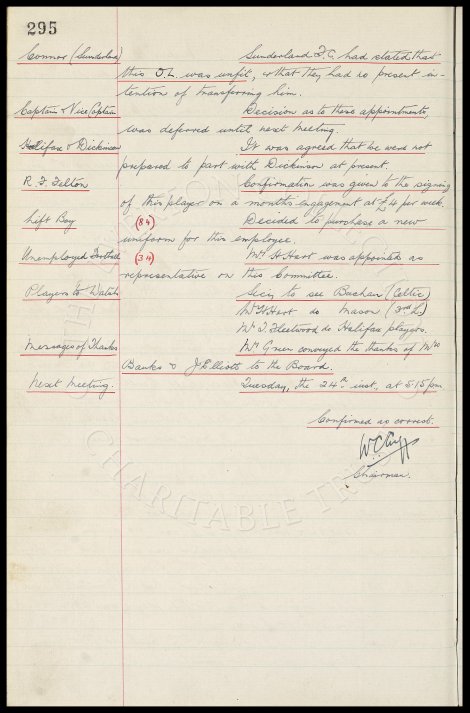 295
Connor (Sunderland) Sunderland F.C. had stated that
this O.L. was unfit, & that they had no present in-
tention of transferring him.
Captain & Vice Captain Decision as to these appointments
was deferred until next meeting.
Halifax & Dickinson It was agreed that we were not
prepared to part with Dickinson at present.
R. F. Felton Confirmation was given to the signing
of this player on a months engagement at £4 per week.
Lift Boy (84) Decided to purchase a new
uniform for this employee.
Unemployed Football (34) Mr H Hart was appointed as
representative on this Committee.
Players to Watch Secy to see Buchan (Celtic)
Mr H Hart do Mason (3rd L)
Mr T. Fleetwood do Halifax players.
Messages of Thanks Mr Green conveyed the thanks of Mrs
Banks & J Elliott to the Board.
Next Meeting. Tuesday, the 24th inst, at 5.15 pm
Confirmed as correct.
W C Cuff
Chairman.
CHARITABLE TRUST